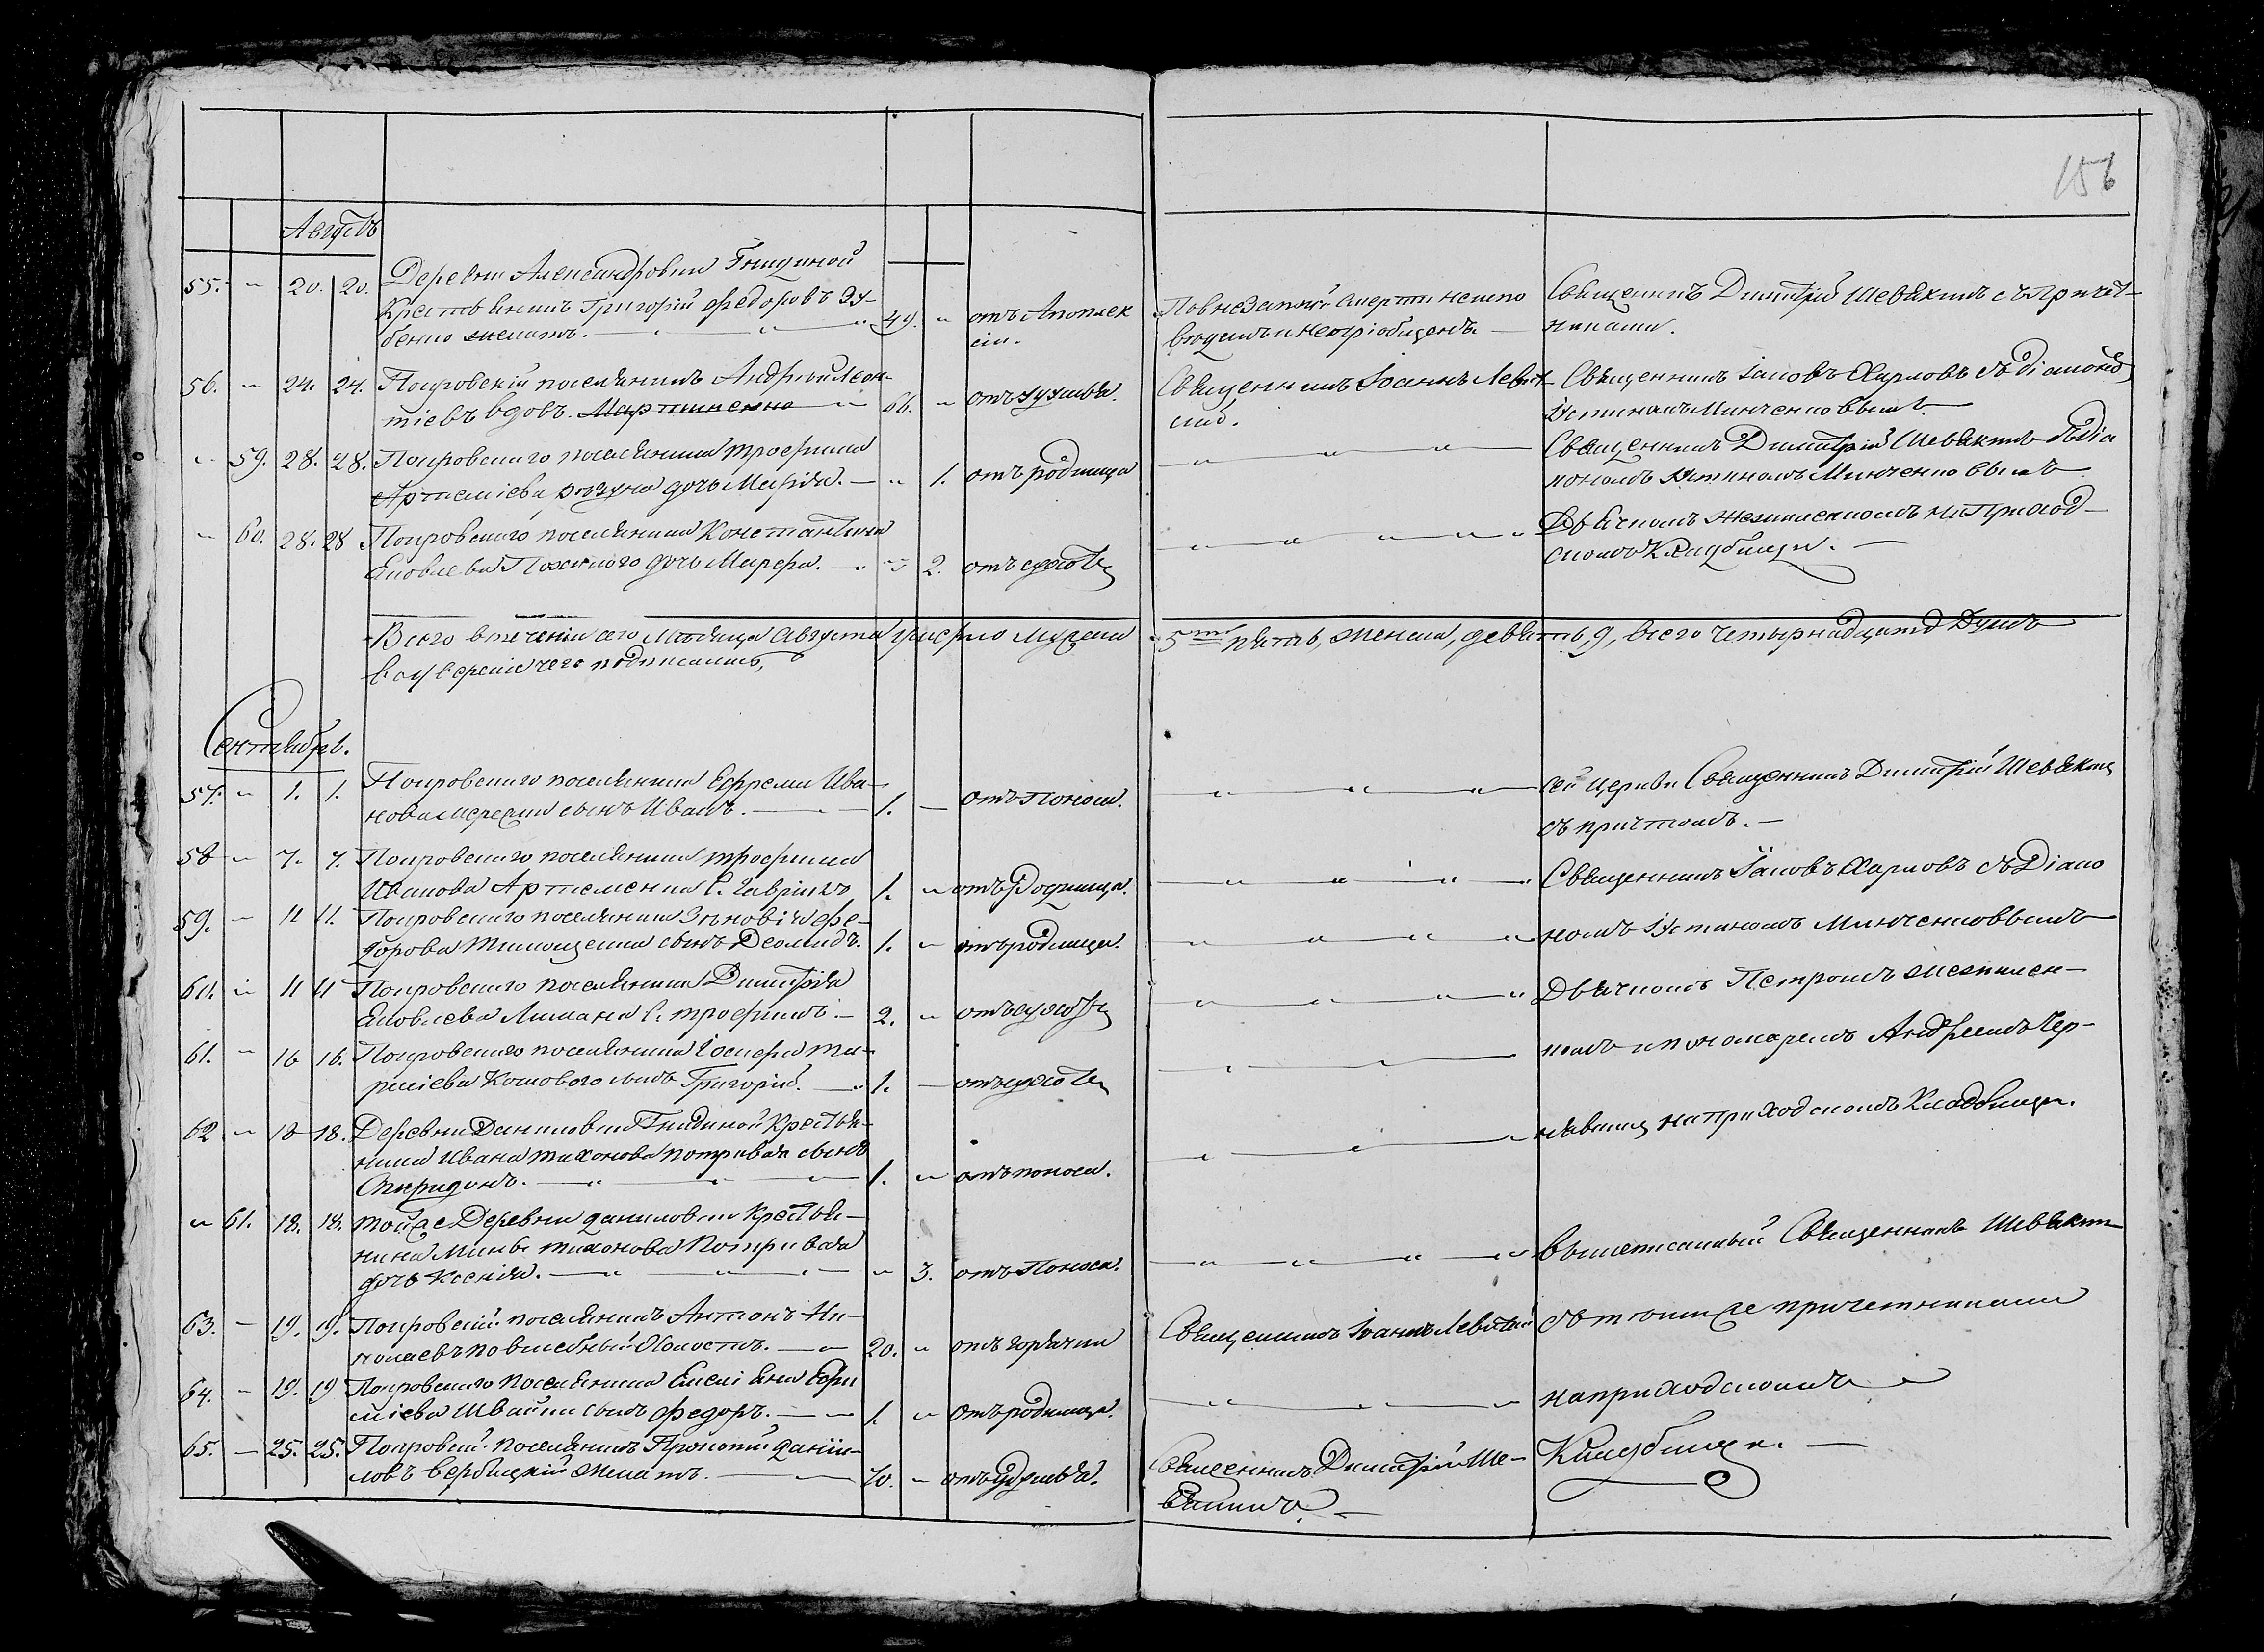 156
Августъ
55. " 20. 20. Деревни Александровки Гнидиной
Крестьянинъ Григорій Федоровъ
женатъ. 49. " отъ Апоплек
сіи.
По внезапной смерти неиспо
вѣдомъ и непріобщенъ.
Священникъ Димитрій Шевякинъ съ Причет-
никами.
56. " 24. 24. Покровскій поселянинъ Андрей Леон-
тіевъ вдовъ. Мартиненко 66. " отъ удушья.
Священникъ Іоаннъ Левит-
скій.
Священникъ Іаковъ Карповъ съ Діакономъ
Устиномъ Минченковымъ
" 59. 28. 28. Покровскаго поселянина Трофима
Артеміева дочь Марія. " 1. отъ родимца
Священникъ Димитрій Шевякинъ съ Діа
кономъ Устиномъ Минченковымъ
" 60. 28. 28 Покровскаго поселянина Константина
Яковлева дочь Марфа. 2. отъ сухоты
Дьячкомъ на Приход-
скомъ Кладбищи.
Всего въ теченіи сего Мѣсяца Августа умерло Мужеска 5 пять, Женска, девять, 9, всего четырнадцать Душъ
въ увѣреніе чего подписались,
Сентябрь.
57. " 1. 1. Покровскаго поселянина Ефрема Ива-
нова сынъ Иванъ. 1. отъ Поноса.
сей Церкви Священникъ Димитрій Шевякинъ
съ причтомъ.
58 " 7. 7. Покровскаго поселянина Трофима
Иванова Артеменка с. Гавріилъ 1. " отъ Родимца.
Священникъ Іаковъ Карповъ съ Діако
59. " 11 11. Покровскаго поселянина Зѣновія Фе-
дорова Тимощенка сынъ Деомидъ. 1. " отъ родимца.
номъ Устиномъ Минченковымъ
60. " 11 11 Покровскаго поселянина Димитрія
Яковлева Лимана с. Трофимъ. 2. " отъ сухоты
Дьячкомъ Петромъ
61. " 16 16. Покровскаго поселянина Іосифа
Кошового сынъ Григорій. 1. отъ сухоты
и пономаремъ Андреемъ Чер-
62 " 18 18. Деревни Даниловки Гнидиной Крестья-
нина Ивана Тихонова Потривая сынъ
Спиридонъ. 1. " отъ поноса.
нявымъ на приходскомъ Кладбищи.
" 61. 18. 18. той же Деревни Даниловки Крестья-
нина Мины Тихонова Потривая
дочь Ксенія. " 3. отъ Поноса.
вышеписанный Священникъ Шевякинъ
63. 19. 19. Покровскій поселянинъ Антонъ Ни-
колаевъ Холостъ. 20. " отъ горячки
Священникъ Іоаннъ Левитскій
съ тѣми же причетниками
64. 19. 19 Покровскаго поселянина Емеліяна
Швайки сынъ Федоръ. 1. " отъ родимца.
на приходскомъ
65. 25. 25. Покровскій поселянинъ Прокопій Даніи-
ловъ Вербицкій женатъ. 70. " отъ удушья.
Священникъ Димитрій Ше-
вякинъ.
Кладбищи.